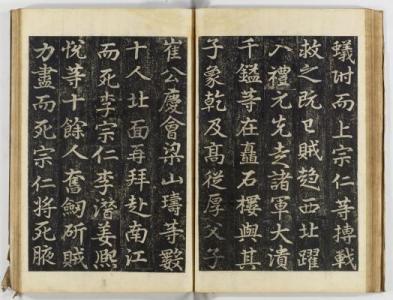 蟻附而上宗仁等搏戰
拔之既而賊趋西北躍
入禮元先走諸軍大潰
千鎰等在矗石樓與其
子象乾及高從厚父子
崔公慶會梁山璹等數
十人北面再拜赴南江
而死李宗仁李潛姜熙
悅等十餘人奮劒斫賊
力盡而死宗仁將死腋